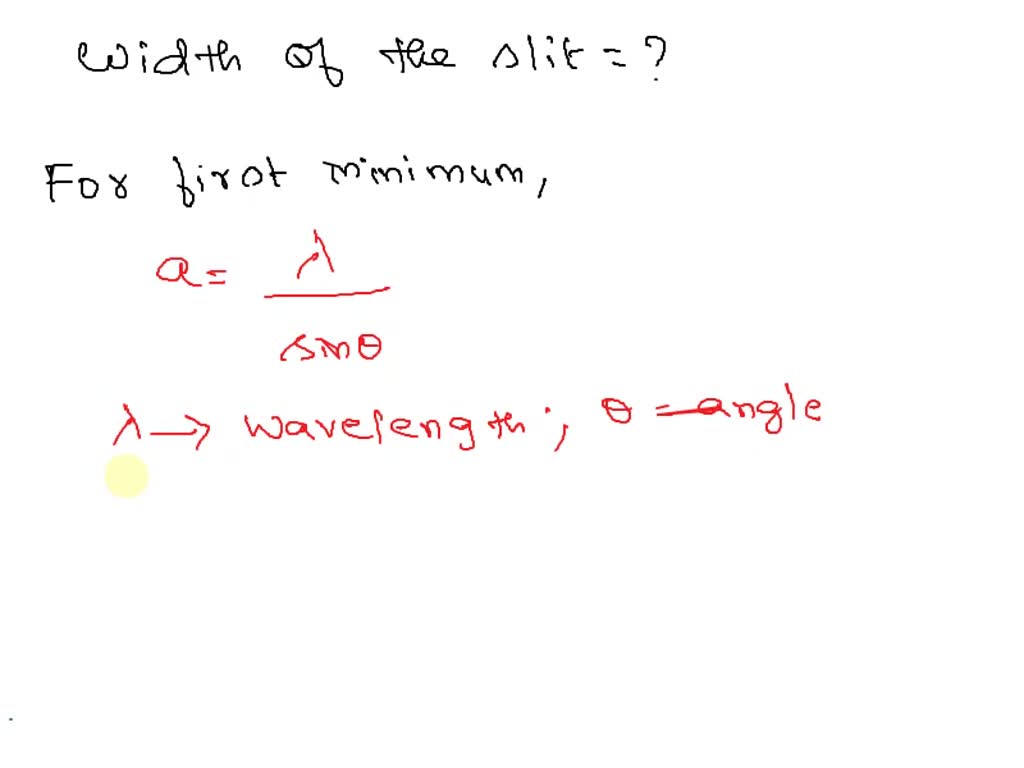 Width of the slit = ?
For first minimum,
a = λ
sinθ
λ → wavelength; θ = angle